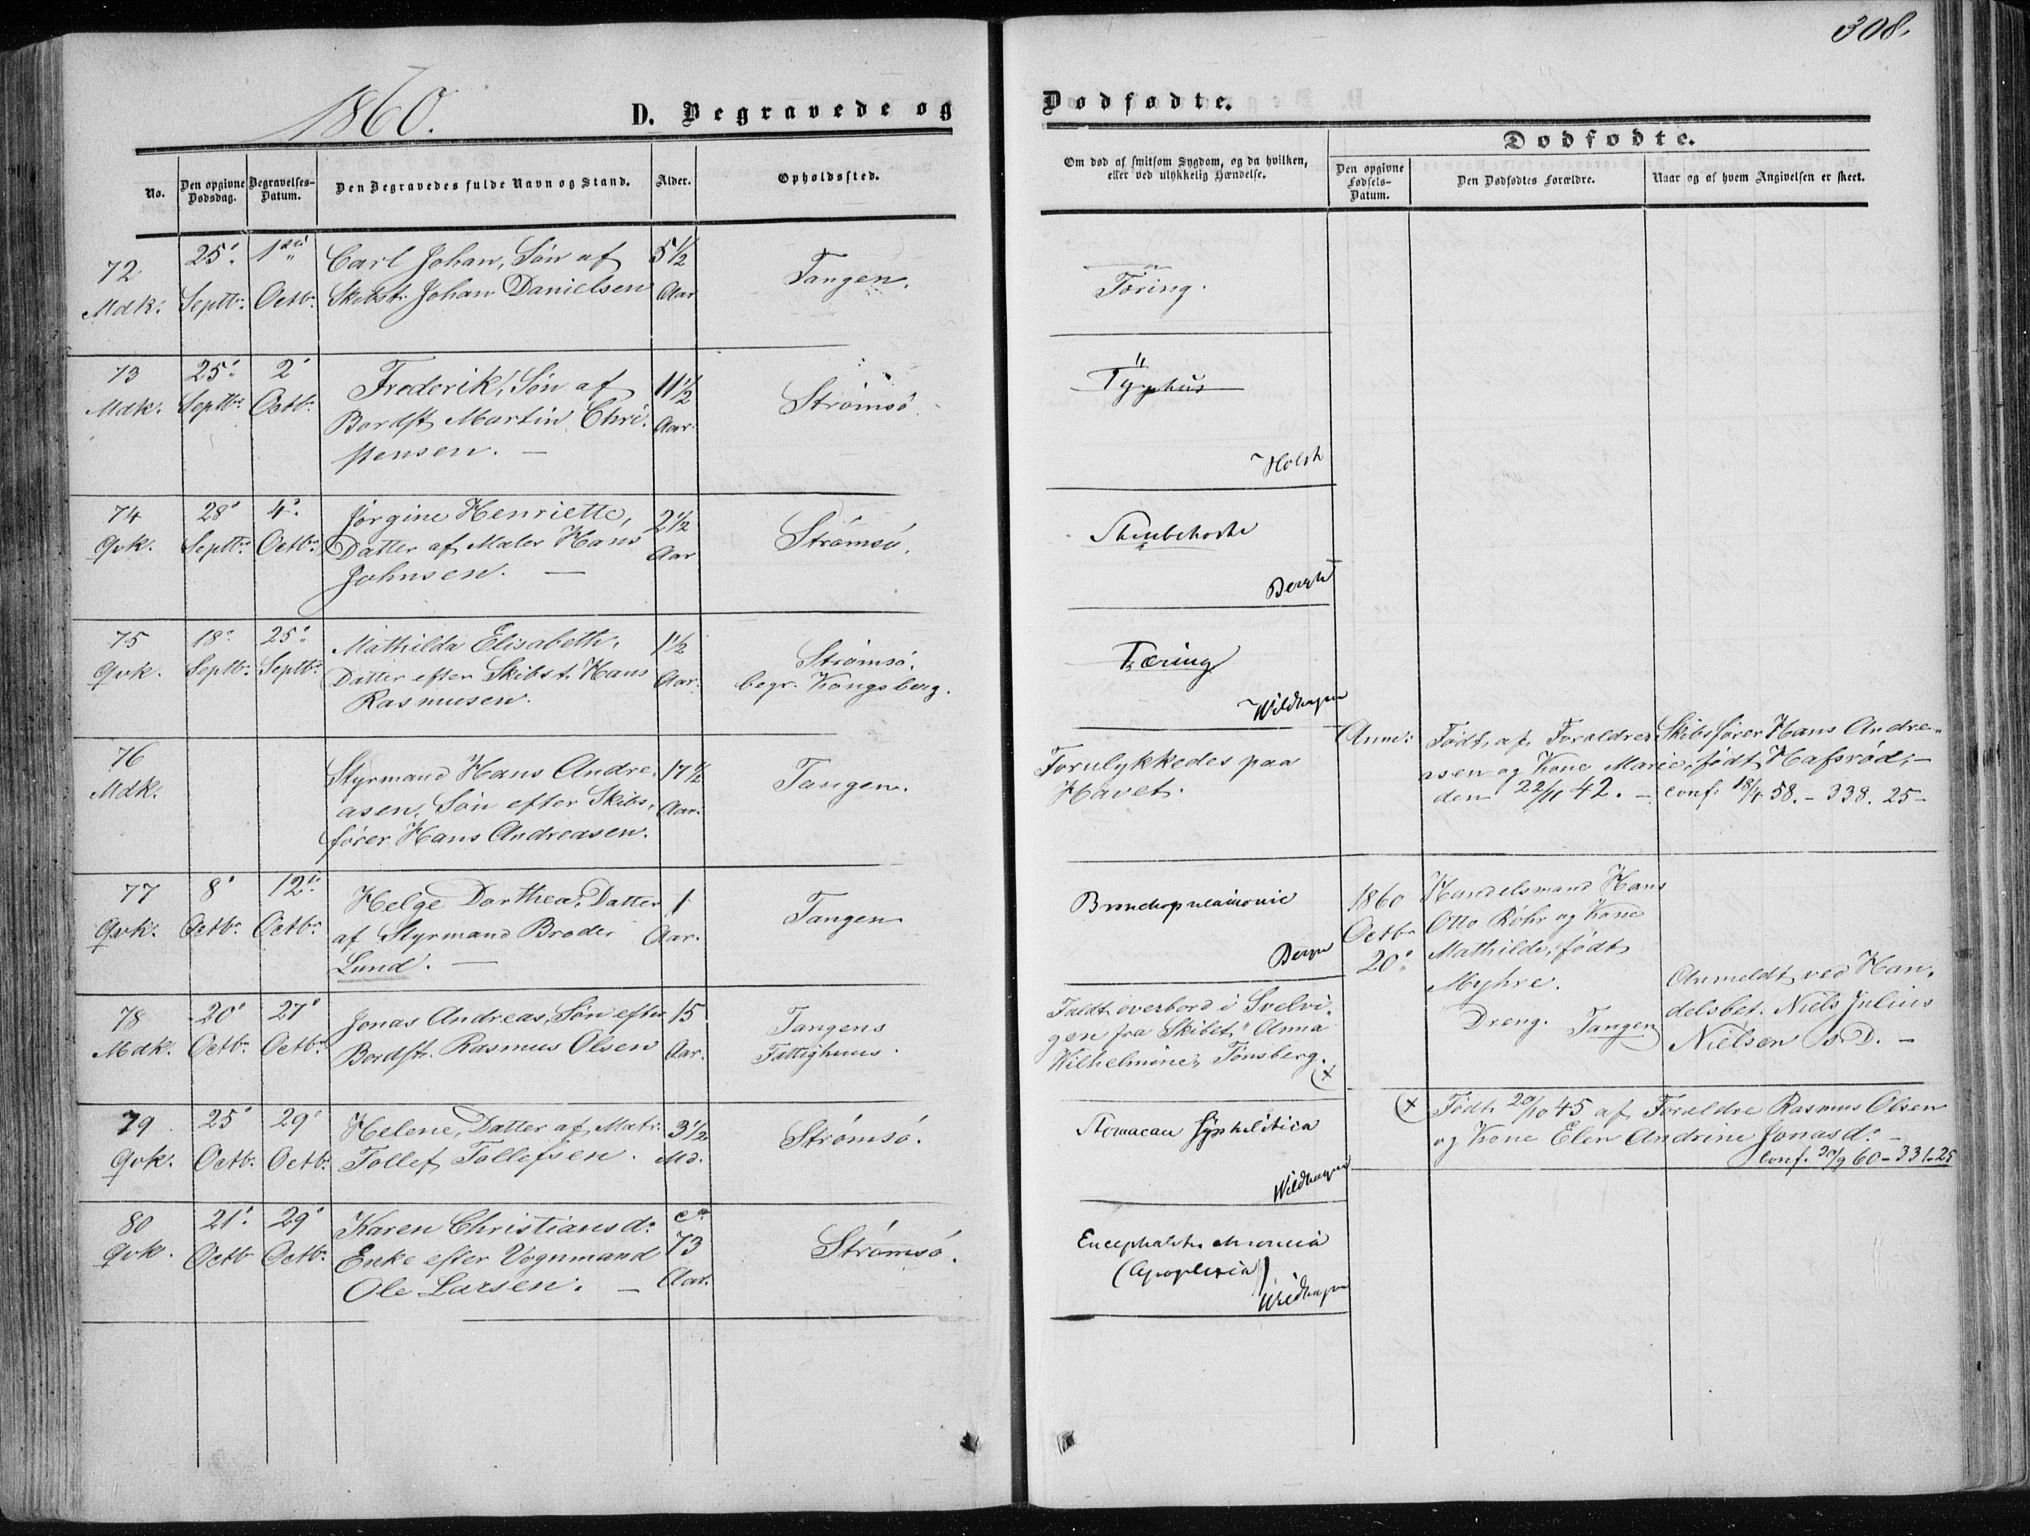 308.
1860.
D. Begravede og
Dødfødte.
No.
Den opgivne Dødsdag.
Begravelses-Datum.
Den Begravedes fulde Navn og Stand.
Alder.
Opholdssted.
Om død af smitsom Sygdom, og da hvilken, eller ved ulykkelig Hændelse.
Dødfødte.
Den opgivne Fødsels-Datum.
Den Dødfødtes Forældre.
Naar og af hvem Angivelsen er skeet.
72 25: 1ste Carl Johan, Søn af 5 1/2 Tangen. Tæring.
Mdk. Septbr. Octbr. Skibst. Johan Danielsen Aar
73 25: 2: Frederik, Søn af 11 1/2 Strømsø. Typhus
Mdk. Septbr. Octbr. Bordst. Martin Chri- Aar
stensen. — Holst
74 28: 4: Jørgine Henriette, 2 1/2 Strømsø. Strubehoste
Qvk. Septbr. Octbr. Datter af Maler Hans Aar
Johnsen. —
75 18: 25: Mathilda Elisabeth, 1 1/2 Strømsø. Tæring
Qvk. Septbr. Septbr. Datter efter Skibst. Hans Aar. begr. Kongsberg.
Rasmusen. Wildhagen
76 Styrmand Hans Andre- 17 1/2 Tangen. Forulykkedes paa
Mdk. asen, Søn efter Skibs- Aar. Havet.
fører Hans Andreasen.
Anm: Født af Forældre Skibsfører Hans Andre-
asen og Kone Marie, født Hafsrød, —
den 22/11 42. — conf. 18/4 58. – 338. 25 –
77 8: 12te Helge Dorthea, Datter 1 Tangen Bronchopneumonie
Qvk. Octbr. Octbr. af Styrmand Broder Aar.
Lund. —
1860 Handelsmand Hans
Octbr. Otto Røhr og Kone
20: Mathilde, født
Myhre.
Dreng. Tangen
Anmeldt ved Han-
delsbet. Niels Julius
Nielsen S. D. —
78 20: 27: Jonas Andreas, Søn efter 15 Tangens Faldt overbord i Svelvi-
Mdk. Octbr. Octbr. Bordst. Rasmus Olsen Aar. Fattighuus. gen fra Skibet "Anna
Wilhelmine", Tønsberg.
(x
79 25: 29: Helene, Datter af Matr. 3 1/2 Strømsø. Syphilitica
Qvk. Octbr. Octbr. Tollef Tollefsen. Md. Wildhagen
(x Født 20/10 45 af Forældre Rasmus Olsen
og Kone Elen Andrine Jonasd: –
conf. 30/9 60 – 331. 25
80 21: 29: Karen Christiansd: ca Strømsø.
Qvk. Octbr Octbr. Enke efter Vognmand 73 (Apoplexia)
Ole Larsen. — Aar. Wildhagen